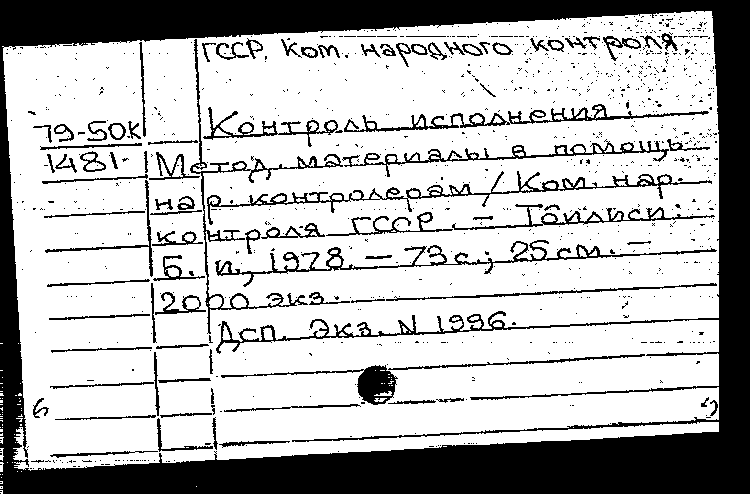 ГССР. Ком. народного контроля.
79-50к
1481.
Контроль исполнения:
Метод. материалы в помощь
нар. контролерам / Ком. нар.
контроля ГССР. – Тбилиси:
Б. и., 1978. – 73 с.; 25 см. –
2000 экз.
Дсп. Экз. N 1996.
б